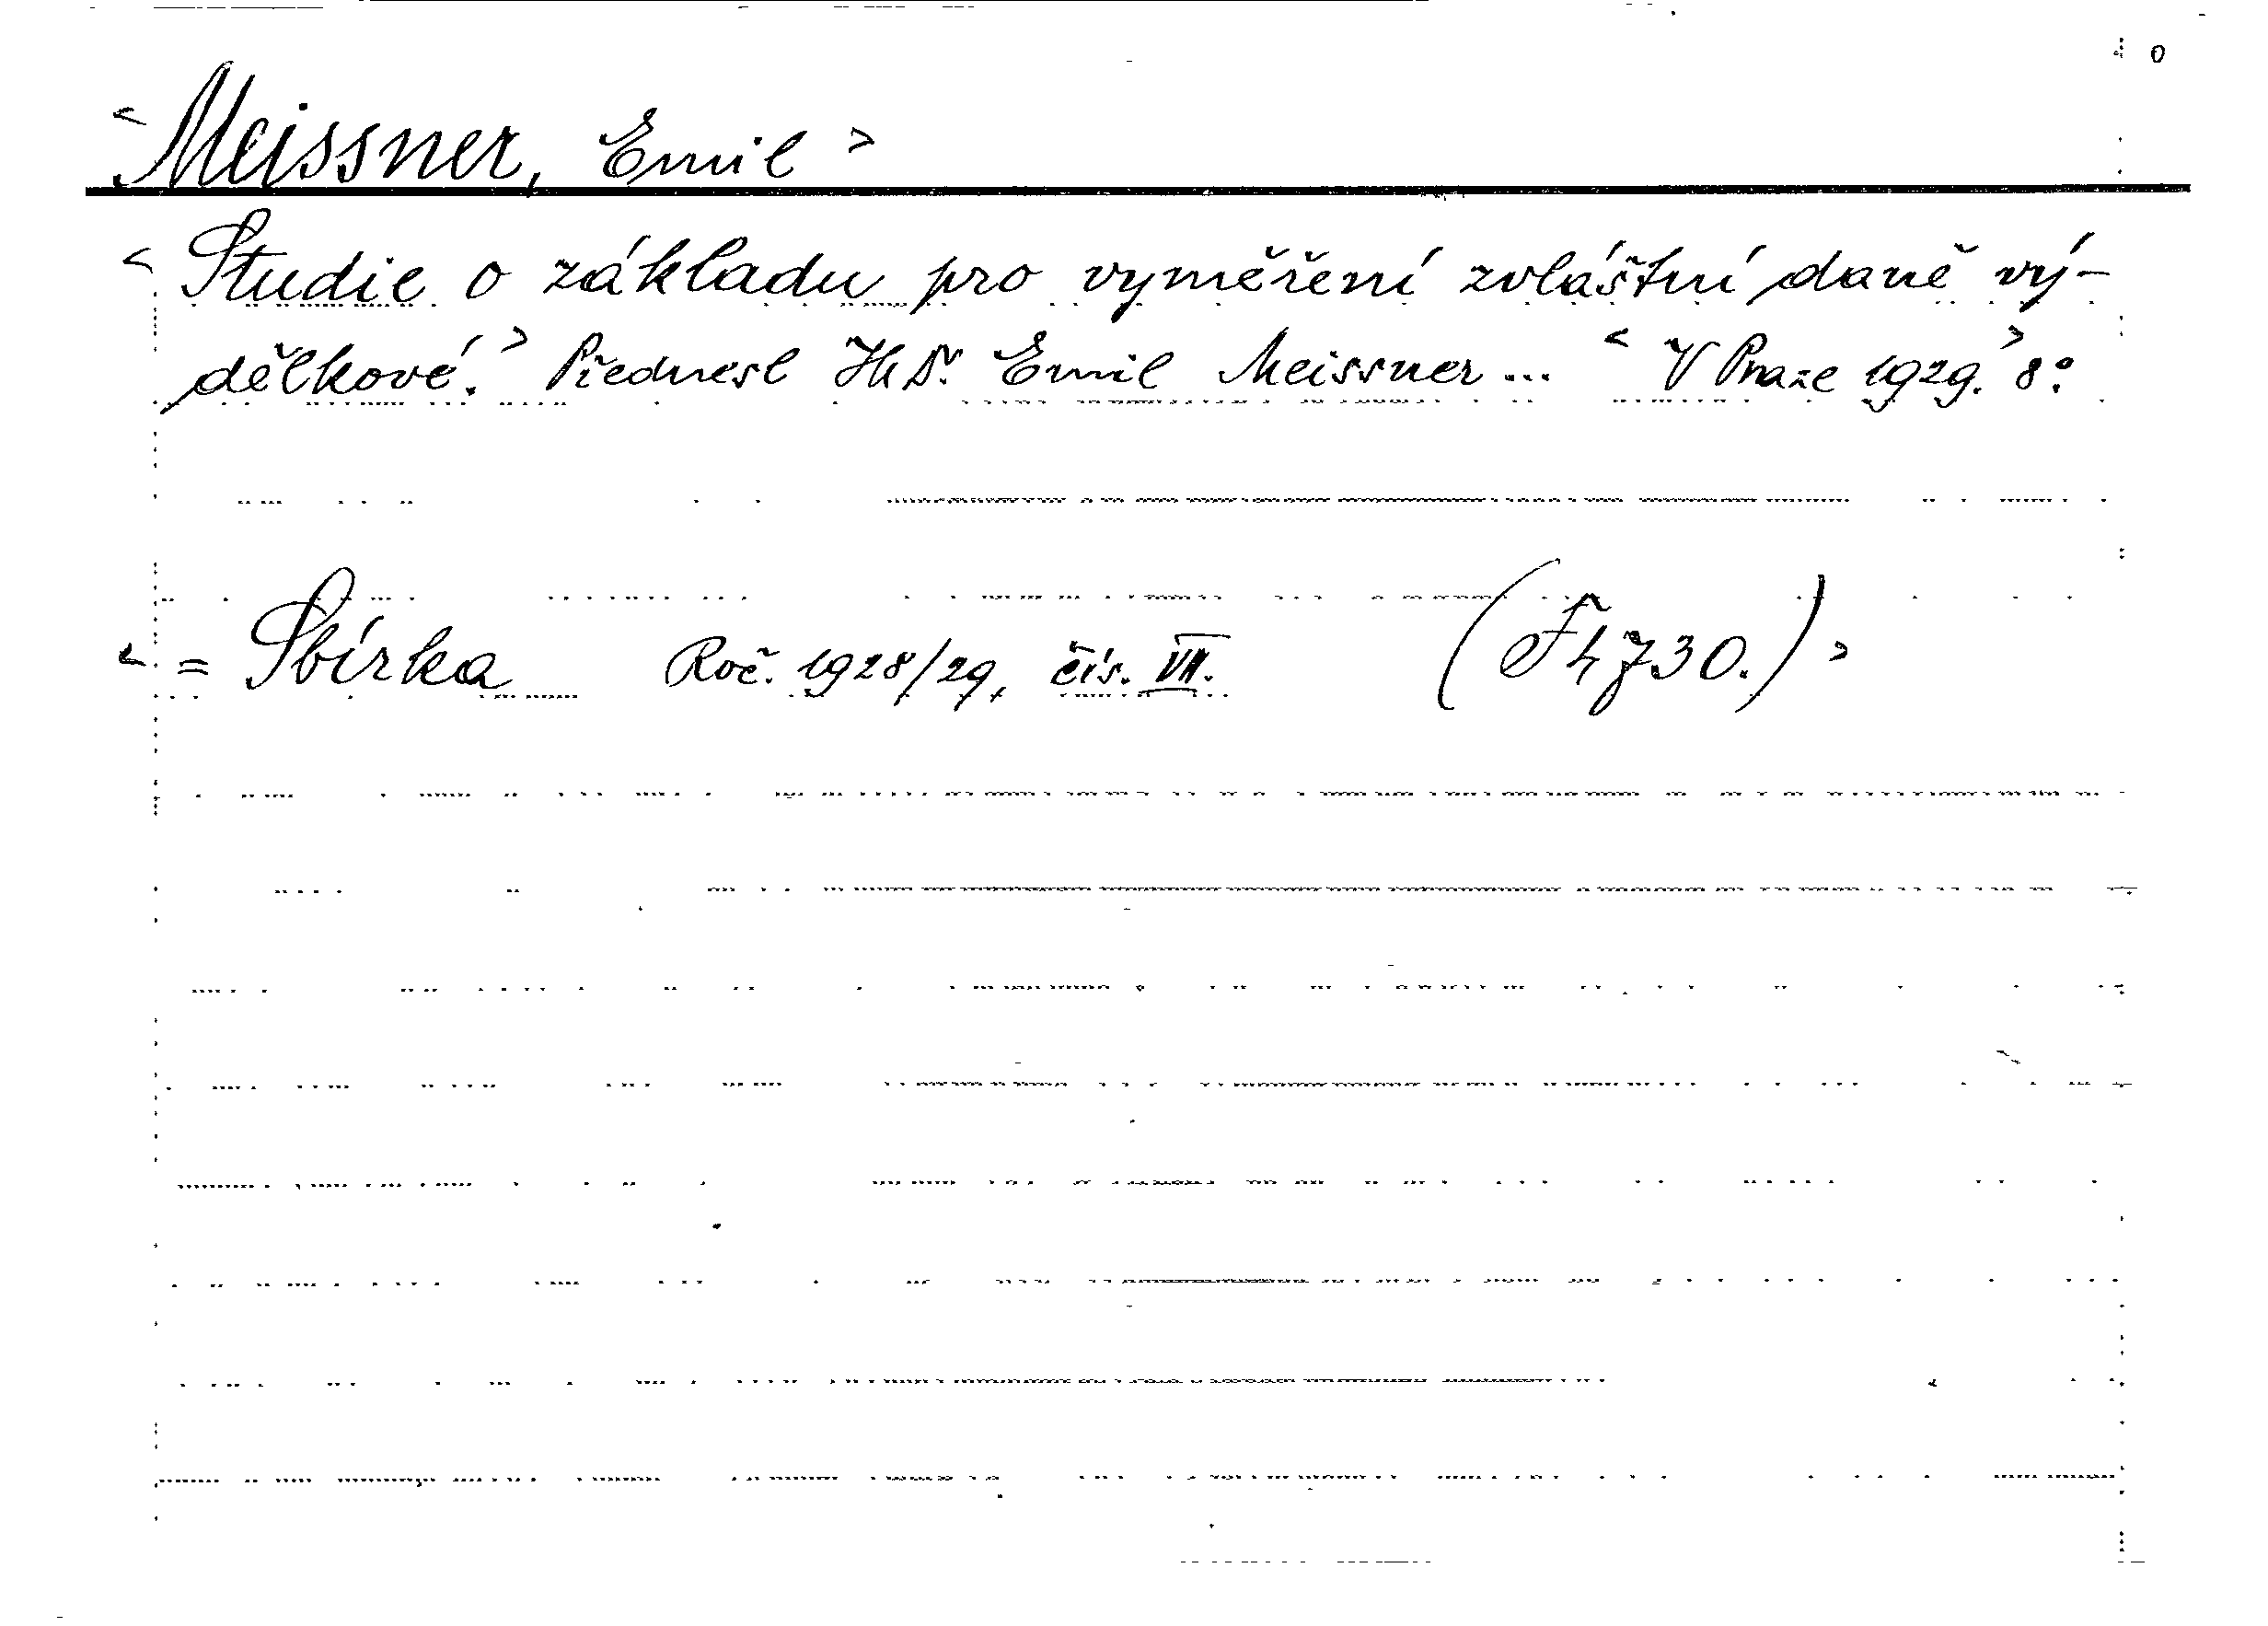 <Meissner, Emil>
<Studie o základu pro vyměření zvláštní daně vý-
dělkové.> Přednesl Dr. Emil Meissner... <V Praze 1929.> 8°
<= Sbírka Roč. 1928/29, čís. VII. (F h 730.)>